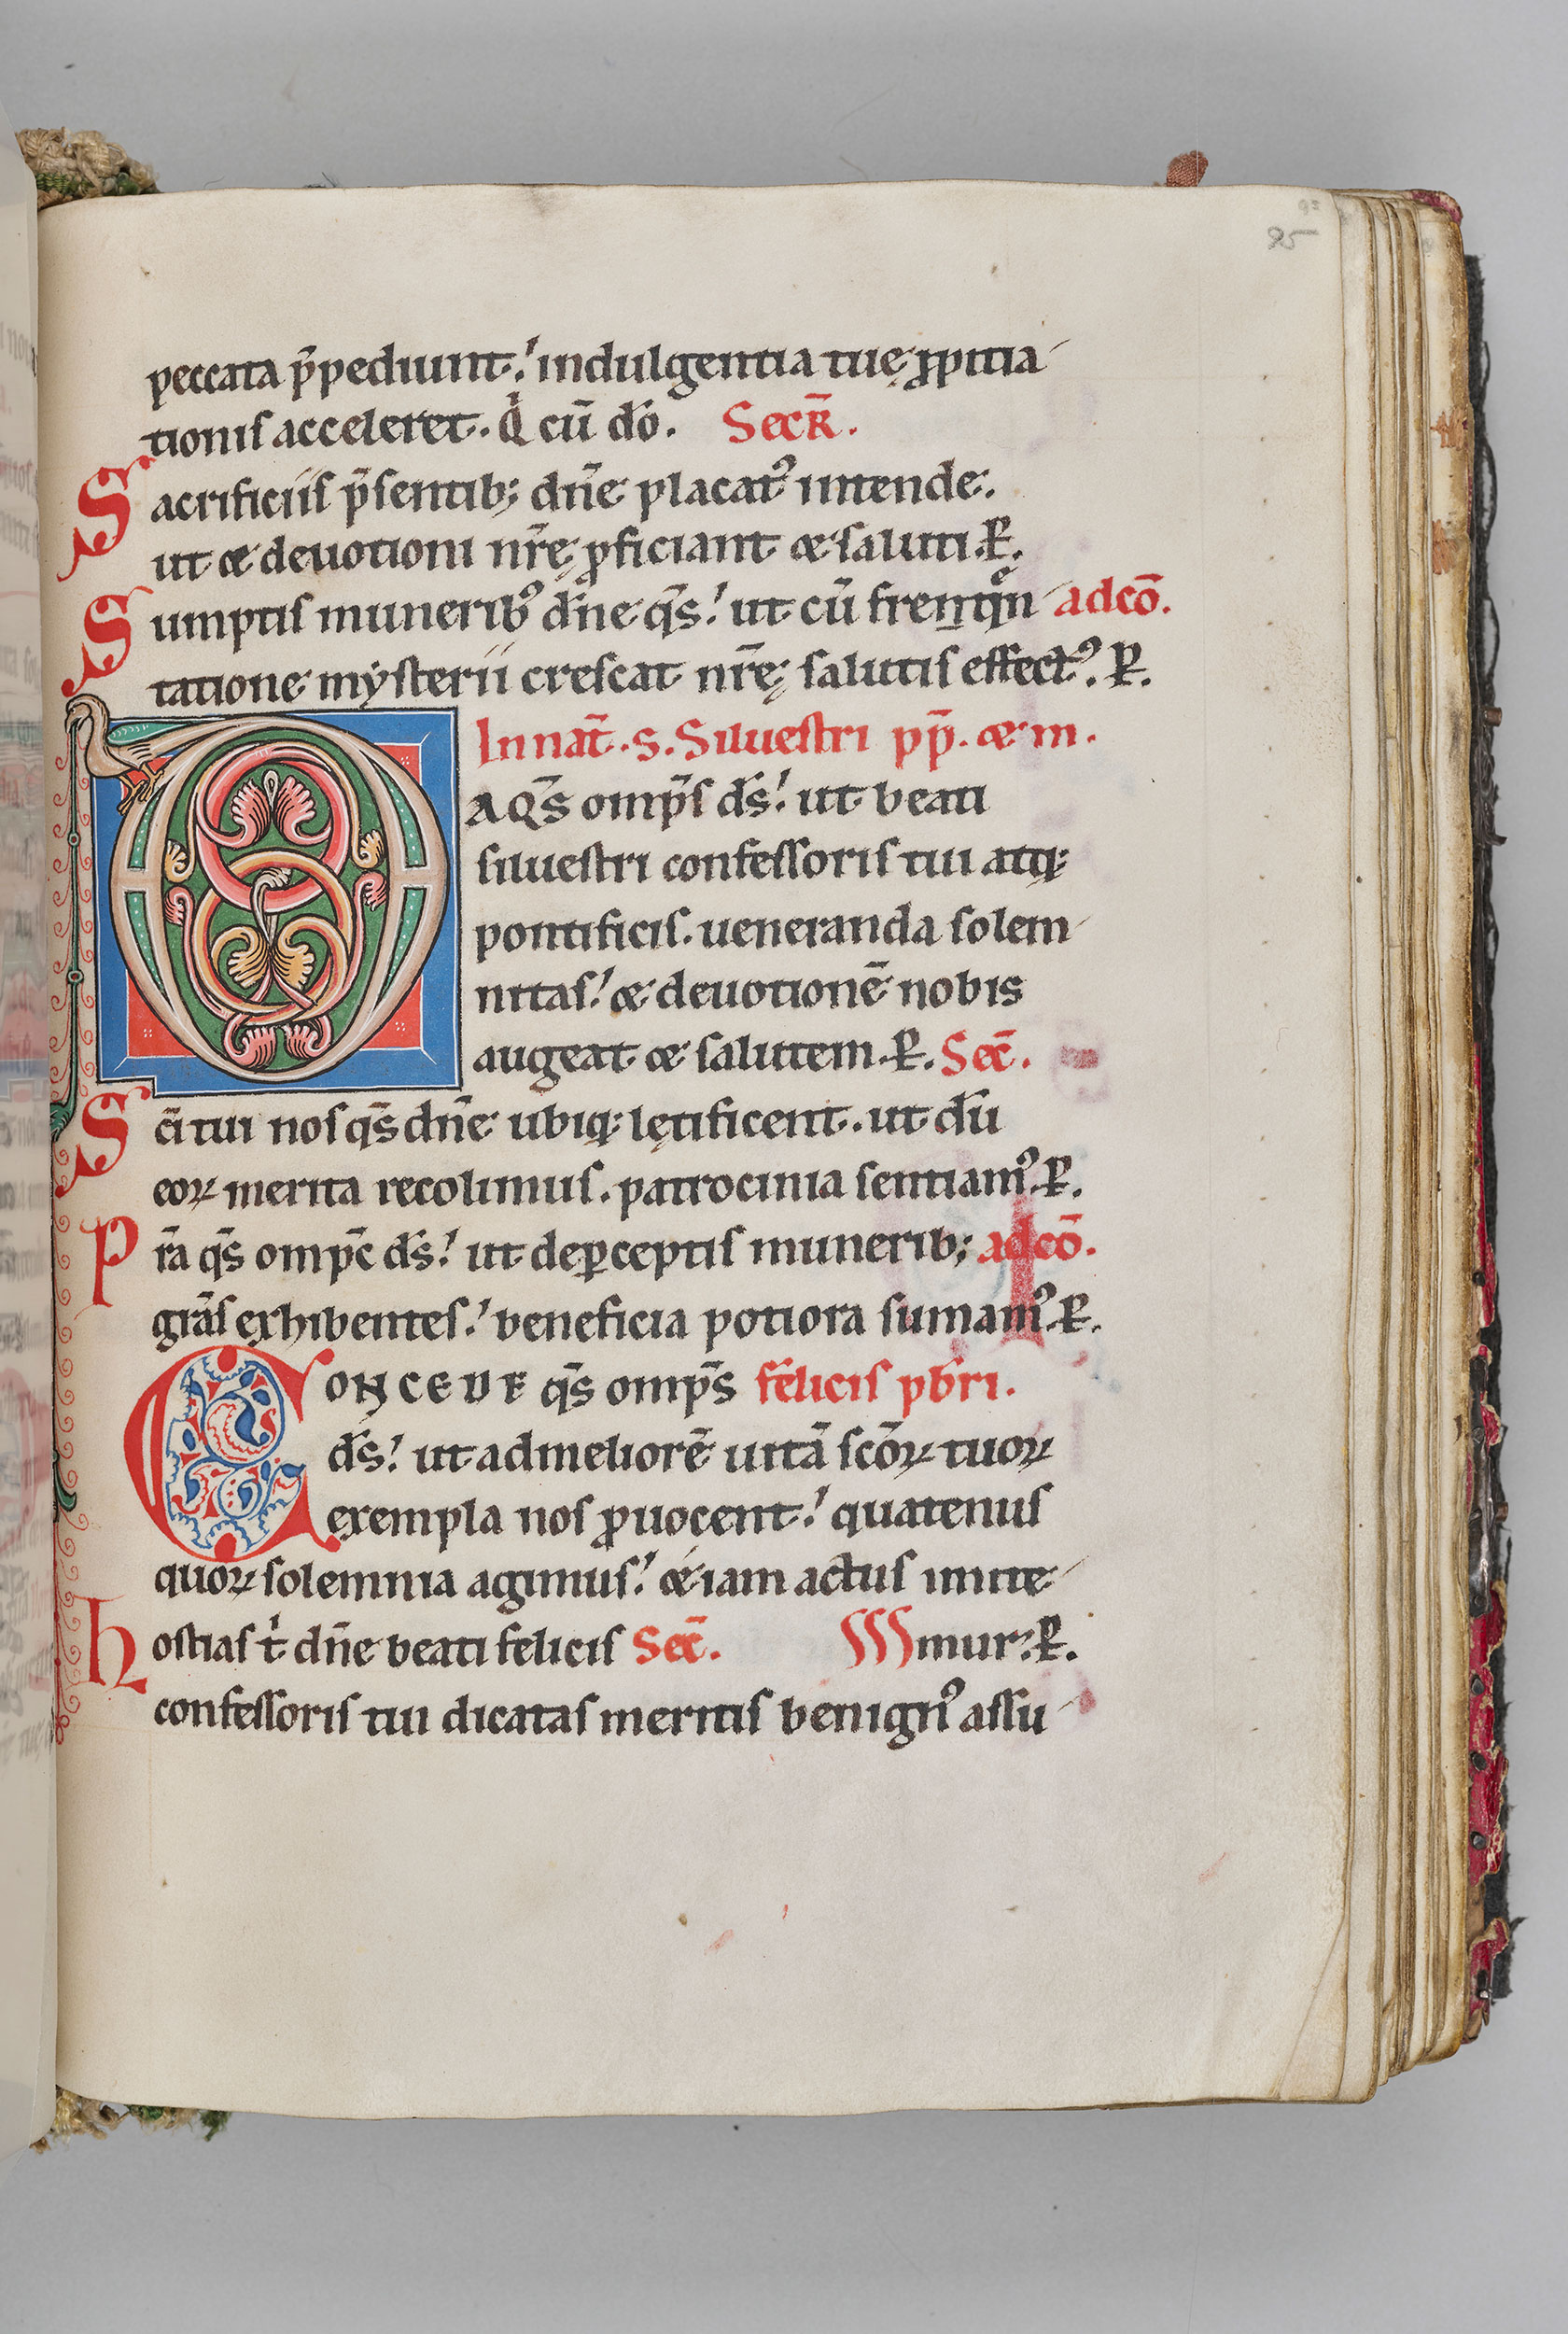 95
85
peccata p̄pediunt. indulgentia tuę ꝓpitia
tionis acceleret. Q̇ cū dō. Secr̄.
Sacrificiis p̄sentib; dn̄e placat᾿ intende.
ut & deuotioni nr̄ę ꝓficiant & saluti. P̲.
Sumptis munerib᾿ dn̄e qs̄. ut cū frequen adcō.
tatione mẏsterii crescat nr̄ę salutis effect᾿. P̲.
In nat̄. s. Siluestri pp̄. & m.
DA QS̄ omp̄s ds̄. ut beati
siluestri confessoris tui atq;
pontificis. ueneranda solem
nitas. & deuotionē nobis
augeat & salutem. P̲. Sec̄.
Sc̄i tui nos qs̄ dn̄e ubiq; lętificent. ut dū
eoꝝ merita recolimus. patrocinia sentiam᾿. P̲.
Pr̄a qs̄ omp̄c ds̄. ut de ꝑceptis munerib; adcō.
gr̄as exhibentes. beneficia potiora sumam᾿. P̲.
CONCEDE qs̄ omp̄s felicis pb̄ri.
ds̄. ut ad meliorē uitā sc̄oꝝ tuoꝝ
exempla nos ꝓuocent. quatenus
quoꝝ solemnia agimus. & iam actus imite
hostias t̄ dn̄e beati felicis Sec̄. mur. P̲.
confessoris tui dicatas meritis benign᾿ assu